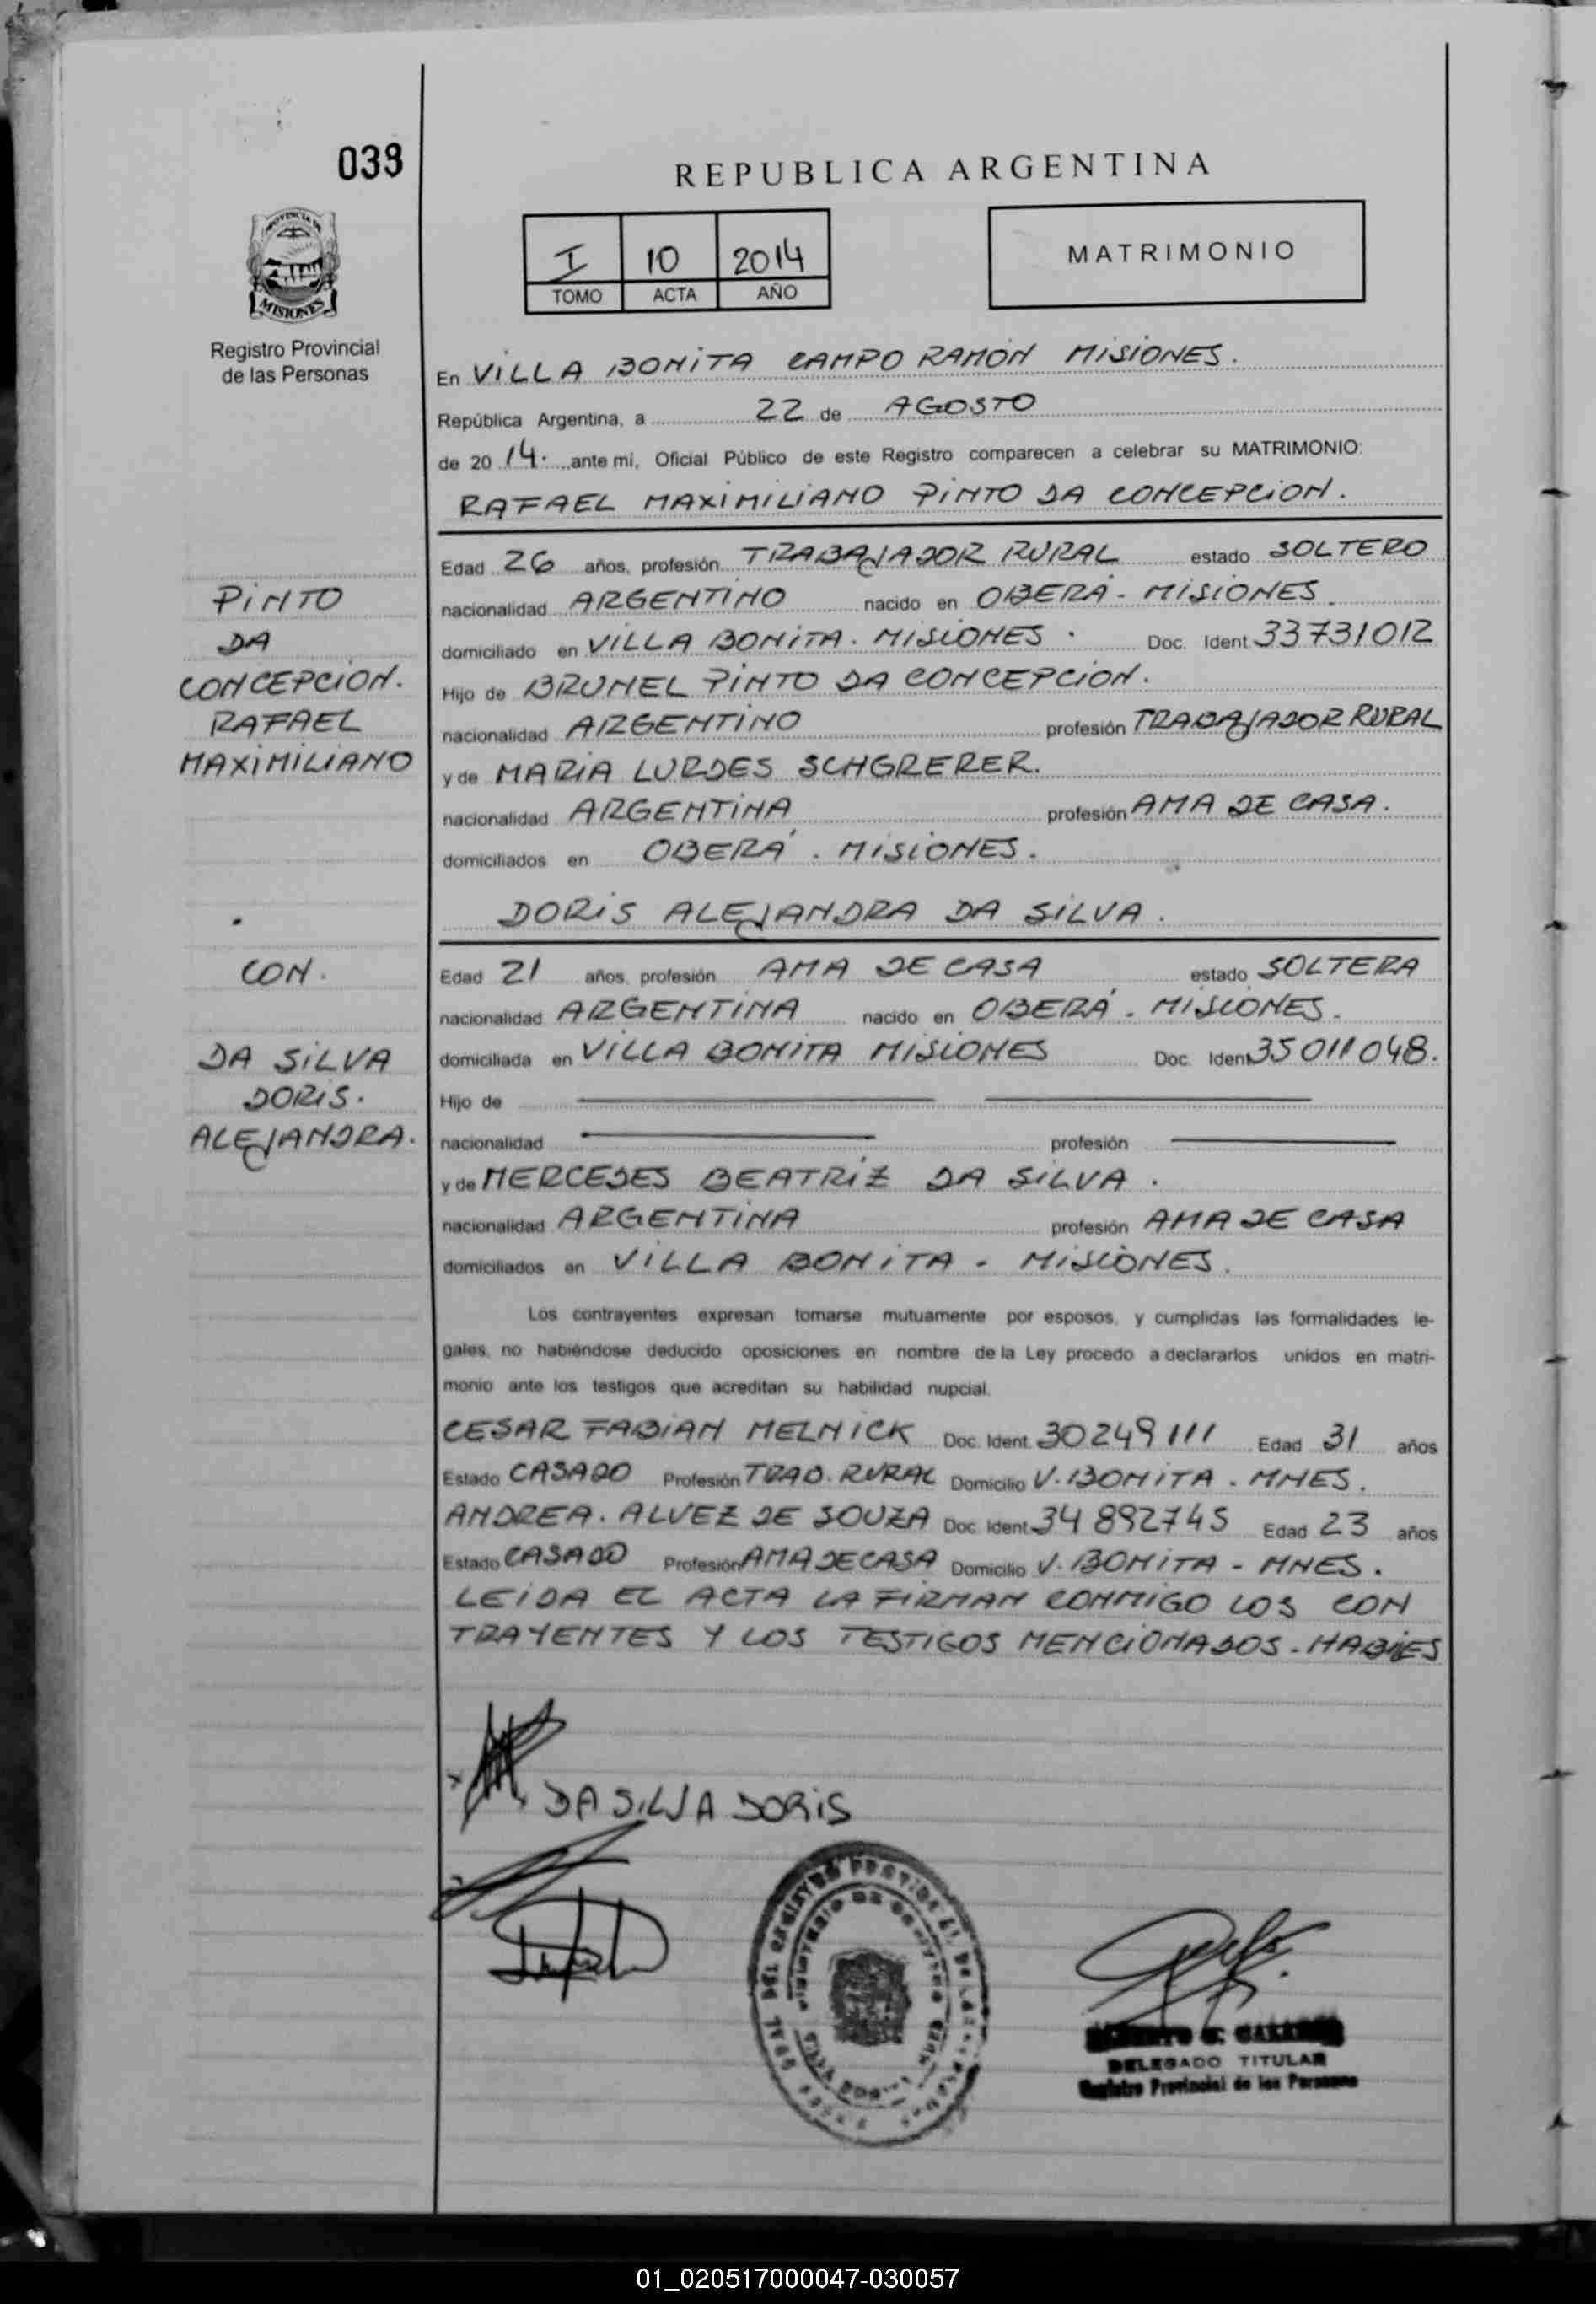 039
REPUBLICA ARGENTINA
I 10 2014
TOMO ACTA AÑO
MATRIMONIO
PROVINCIA DE
MISIONES
Registro Provincial
de las Personas
En VILLA BONITA CAMPO RAMÓN MISIONES.
República Argentina, a 22 de AGOSTO
de 20 14. ante mi, Oficial Público de este Registro comparecen a celebrar su MATRIMONIO:
RAFAEL MAXIMILIANO PINTO DA CONCEPCION.
Edad 26 años, profesión TRABAJADOR RURAL estado SOLTERO
nacionalidad ARGENTINO nacido en OBERÁ - MISIONES.
domiciliado en VILLA BONITA. MISIONES. Doc. Ident. 33731012
Hijo de BRUNEL PINTO DA CONCEPCION.
nacionalidad ARGENTINO profesión TRABAJADOR RURAL
y de MARIA LURDES SCHGRERER.
nacionalidad ARGENTINA profesión AMA DE CASA.
domiciliados en OBERÁ. MISIONES.
PINTO
DA
CONCEPCION.
RAFAEL
MAXIMILIANO
DORIS ALEJANDRA DA SILVA.
CON.
Edad 21 años, profesión AMA DE CASA estado SOLTERA
nacionalidad ARGENTINA nacido en OBERÁ. MISIONES.
domiciliada en VILLA BONITA MISIONES Doc. Ident. 35011048.
Hijo de
nacionalidad profesión
y de MERCEDES BEATRIZ DA SILVA.
nacionalidad ARGENTINA profesión AMA DE CASA
domiciliados en VILLA BONITA - MISIONES.
DA SILVA
DORIS.
ALEJANDRA.
Los contrayentes expresan tomarse mutuamente por esposos, y cumplidas las formalidades le-
gales, no habiéndose deducido oposiciones en nombre de la Ley procedo a declararlos unidos en matri-
monio ante los testigos que acreditan su habilidad nupcial.
CESAR FABIAN MELNICK Doc. Ident. 30249111 Edad 31 años
Estado CASADO Profesión TRAB. RURAL Domicilio V. BONITA. MNES.
ANDREA. ALVEZ DE SOUZA Doc. Ident. 34892745 Edad 23 años
Estado CASADO Profesión AMA DE CASA Domicilio V. BONITA - MNES.
LEIDA EL ACTA LA FIRMAN CONMIGO LOS CON
TRAYENTES Y LOS TESTIGOS MENCIONADOS - HABILES
DA SILVA DORIS
DELEGADO TITULAR
Registro Provincial de las Personas
01_020517000047-030057